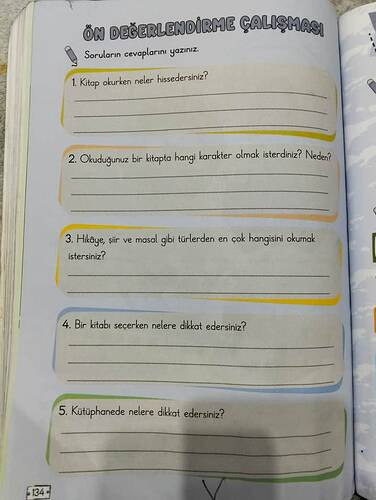 ÖN DEĞERLENDİRME ÇALIŞMASI
Soruların cevaplarını yazınız.
1. Kitap okurken neler hissedersiniz?
2. Okuduğunuz bir kitapta hangi karakter olmak isterdiniz? Neden?
3. Hikâye, şiir ve masal gibi türlerden en çok hangisini okumak
istersiniz?
4. Bir kitabı seçerken nelere dikkat edersiniz?
5. Kütüphanede nelere dikkat edersiniz?
134